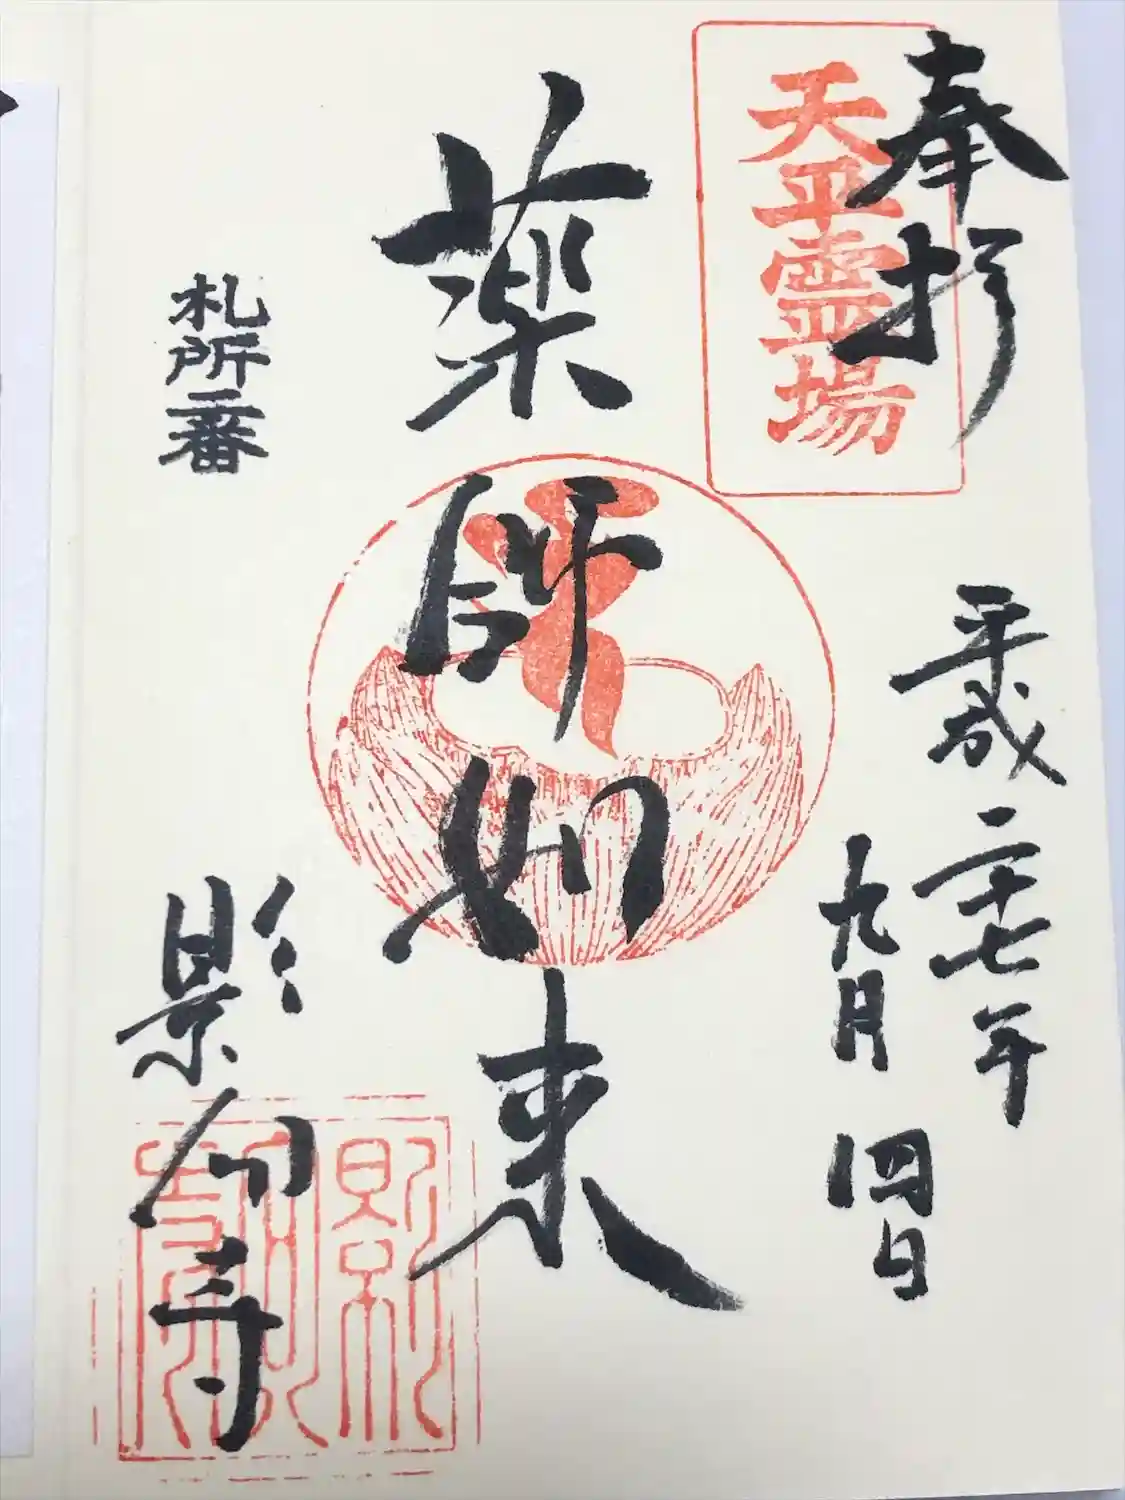 奉拝
天平霊場
平成二十七年
九月四日
薬師如来
札所二番
影向寺
影向寺